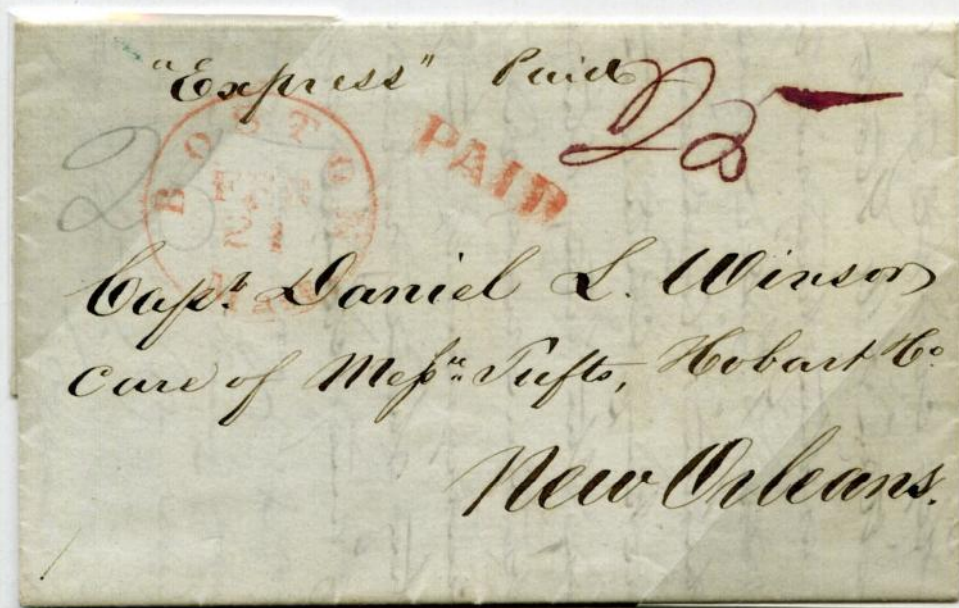 "Express" Paid
25
PAID
BOSTON
FEB
21
MASS
Capt. Daniel L. Winsor
Care of Messrs. Tufts, Hobart & Co.
New Orleans.